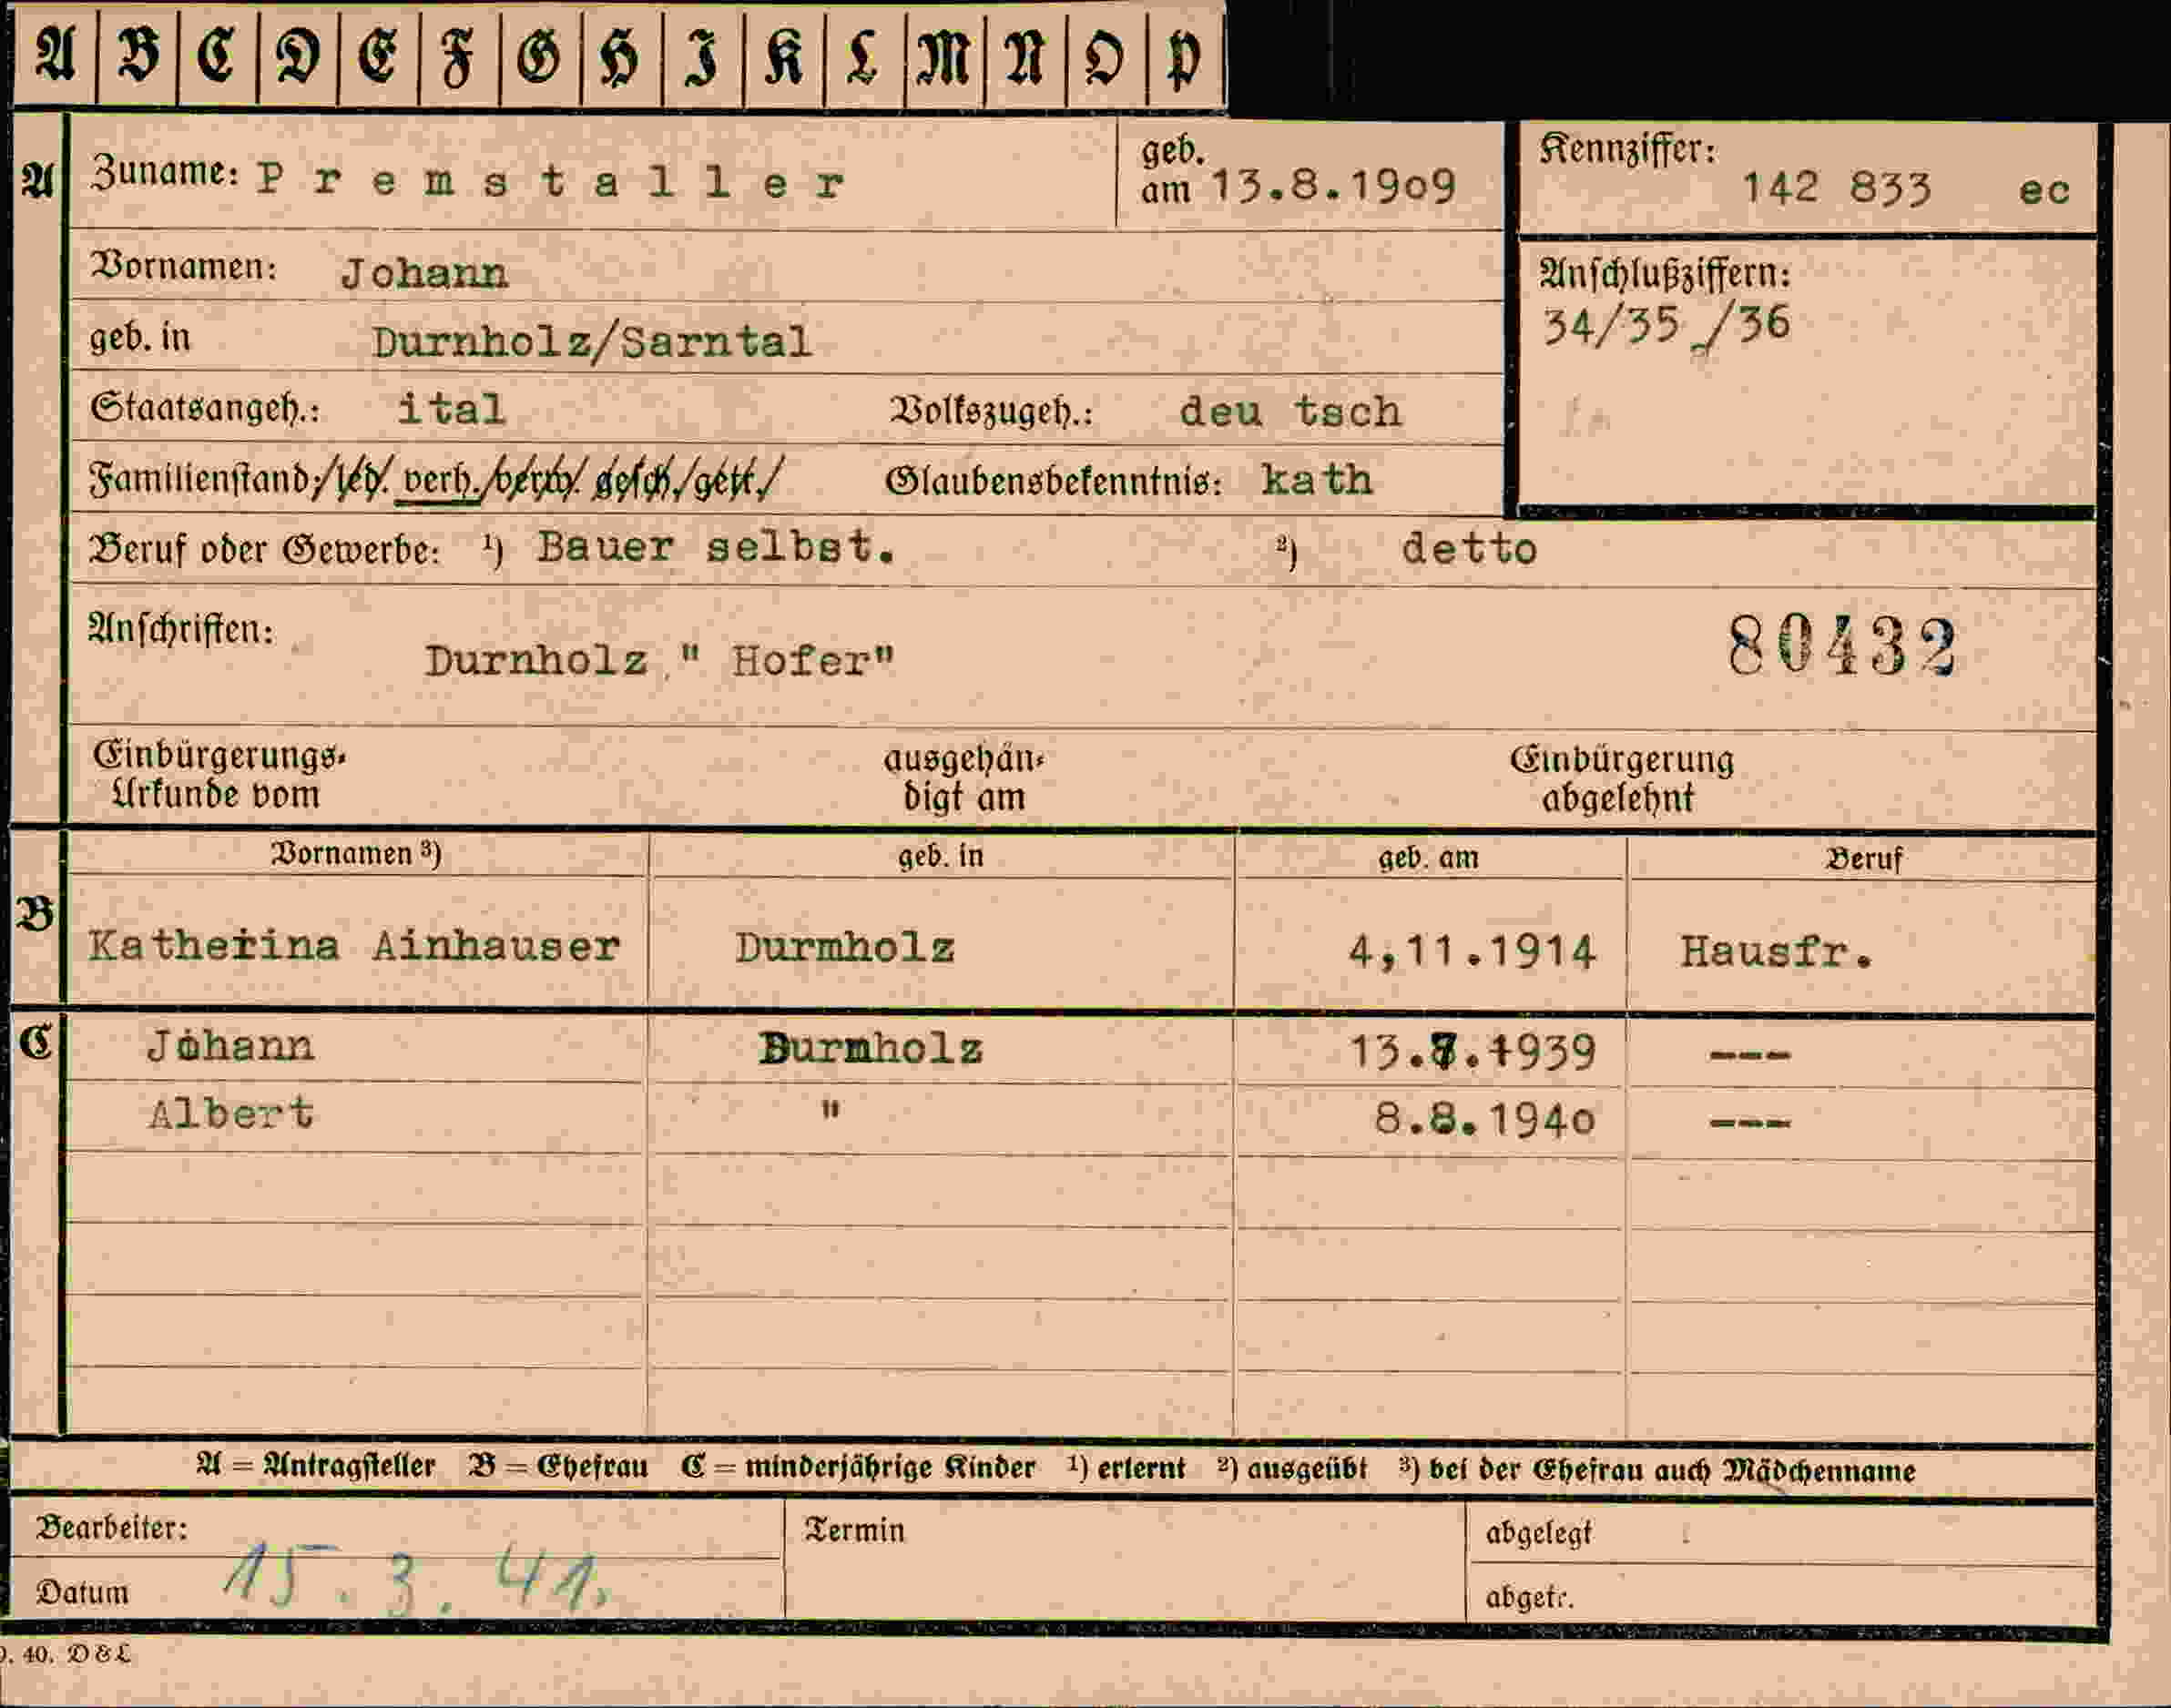 A B C D E F G H I K L M N O P
A Zuname: Premstaller geb. am 13.8.1909 Kennziffer: 142 833 ec
Vornamen: Johann
Anschlußziffern:
34/35 /36
geb. in Durnholz/Sarntal
Staatsangeh.: ital Volkszugeh.: deu tsch
Familienstand: led. verh. verw. gesch. getr. Glaubensbekenntnis: kath
Beruf oder Gewerbe: ¹) Bauer selbst. ²) detto
Anschriften: Durnholz " Hofer" 80432
Einbürgerungs- ausgehän- Einbürgerung
Urkunde vom digt am abgelehnt
Vornamen ³) geb. in geb. am Beruf
B Katherina Ainhauser Durmholz 4,11.1914 Hausfr.
C Johann Durmholz 13.7.1939 ---
Albert " 8.8.1940 ---
A = Antragsteller B = Ehefrau C = minderjährige Kinder ¹) erlernt ²) ausgeübt ³) bei der Ehefrau auch Mädchenname
Bearbeiter: Termin abgelegt
Datum 15.3.41. abgetr.
40. D & L